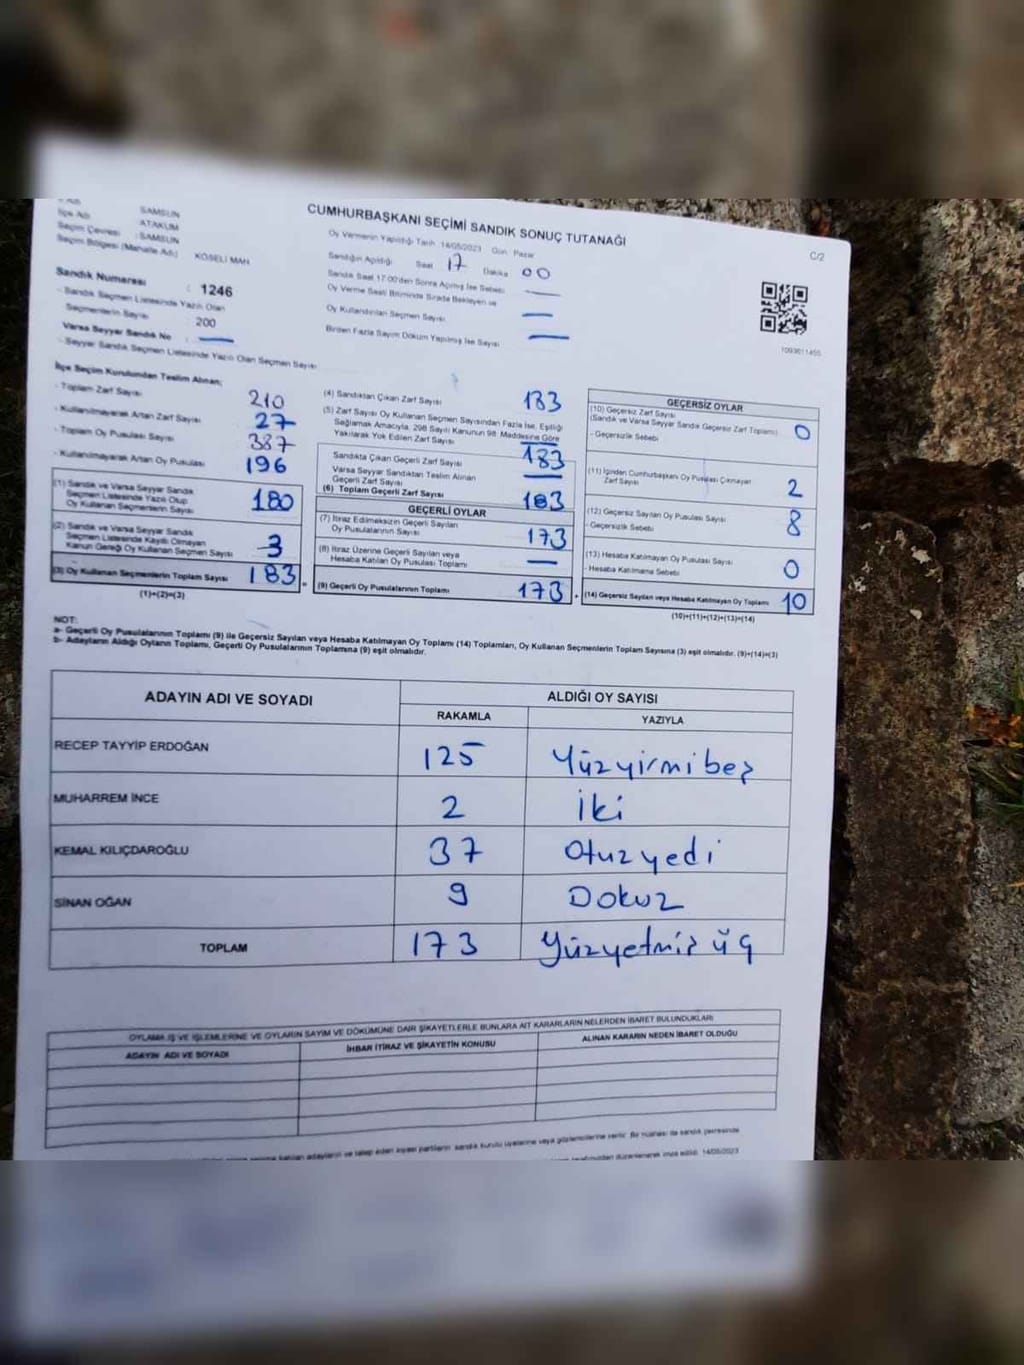 SAMSUN
İlçe Adı : ATAKUM
Seçim Çevresi : SAMSUN
Seçim Bölgesi (Mahalle Adı) KÖSELİ MAH.
Sandık Numarası : 1246
- Sandık Seçmen Listesinde Yazılı Olan
Seçmenlerin Sayısı : 200
Varsa Seyyar Sandık No : —
- Seyyar Sandık Seçmen Listesinde Yazılı Olan Seçmen Sayısı
CUMHURBAŞKANI SEÇİMİ SANDIK SONUÇ TUTANAĞI
C/2
Oy Vermenin Yapıldığı Tarih 14/05/2023 Gün Pazar
Sandığın Açıldığı Saat 17 Dakika 00
Sandık Saat 17:00'den Sonra Açılmış İse Sebebi —
Oy Verme Saati Bitiminde Sırada Bekleyen ve
Oy Kullandırılan Seçmen Sayısı —
Birden Fazla Sayım Döküm Yapılmış İse Sayısı —
İlçe Seçim Kurulundan Teslim Alınan;
- Toplam Zarf Sayısı 210
- Kullanılmayarak Artan Zarf Sayısı 27
- Toplam Oy Pusulası Sayısı 387
- Kullanılmayarak Artan Oy Pusulası 196
(1) Sandık ve Varsa Seyyar Sandık
Seçmen Listesinde Yazılı Olup
Oy Kullanan Seçmenlerin Sayısı 180
(2) Sandık ve Varsa Seyyar Sandık
Seçmen Listesinde Kayıtlı Olmayan
Kanun Gereği Oy Kullanan Seçmen Sayısı 3
(3) Oy Kullanan Seçmenlerin Toplam Sayısı 183
(1)+(2)=(3)
(4) Sandıktan Çıkan Zarf Sayısı 183
(5) Zarf Sayısı Oy Kullanan Seçmen Sayısından Fazla İse, Eşitliği
Sağlamak Amacıyla, 298 Sayılı Kanunun 98. Maddesine Göre
Yakılarak Yok Edilen Zarf Sayısı —
Sandıkta Çıkan Geçerli Zarf Sayısı 183
Varsa Seyyar Sandıktan Teslim Alınan
Geçerli Zarf Sayısı —
(6) Toplam Geçerli Zarf Sayısı 183
GEÇERLİ OYLAR
(7) İtiraz Edilmeksizin Geçerli Sayılan
Oy Pusulalarının Sayısı 173
(8) İtiraz Üzerine Geçerli Sayılan veya
Hesaba Katılan Oy Pusulası Toplamı —
(9) Geçerli Oy Pusulalarının Toplamı 173
GEÇERSİZ OYLAR
(10) Geçersiz Zarf Sayısı
(Sandık ve Varsa Seyyar Sandık Geçersiz Zarf Toplamı) 0
- Geçersizlik Sebebi
(11) İçinden Cumhurbaşkanı Oy Pusulası Çıkmayan
Zarf Sayısı 2
(12) Geçersiz Sayılan Oy Pusulası Sayısı 8
- Geçersizlik Sebebi
(13) Hesaba Katılmayan Oy Pusulası Sayısı 0
- Hesaba Katılmama Sebebi
(14) Geçersiz Sayılan veya Hesaba Katılmayan Oy Toplamı 10
(10)+(11)+(12)+(13)=(14)
NOT:
a- Geçerli Oy Pusulalarının Toplamı (9) ile Geçersiz Sayılan veya Hesaba Katılmayan Oy Toplamı (14) Toplamları, Oy Kullanan Seçmenlerin Toplam Sayısına (3) eşit olmalıdır. (9)+(14)=(3)
b- Adayların Aldığı Oyların Toplamı, Geçerli Oy Pusulalarının Toplamına (9) eşit olmalıdır.
ADAYIN ADI VE SOYADI ALDIĞI OY SAYISI
RAKAMLA YAZIYLA
RECEP TAYYİP ERDOĞAN 125 Yüzyirmibeş
MUHARREM İNCE 2 İki
KEMAL KILIÇDAROĞLU 37 Otuzyedi
SİNAN OĞAN 9 Dokuz
TOPLAM 173 Yüzyetmiş üç
OYLAMA İŞ VE İŞLEMLERİNE VE OYLARIN SAYIM VE DÖKÜMÜNE DAİR ŞİKAYETLERLE BUNLARA AİT KARARLARIN NELERDEN İBARET BULUNDUKLARI
ADAYIN ADI VE SOYADI İHBAR İTİRAZ VE ŞİKAYETİN KONUSU ALINAN KARARIN NEDEN İBARET OLDUĞU